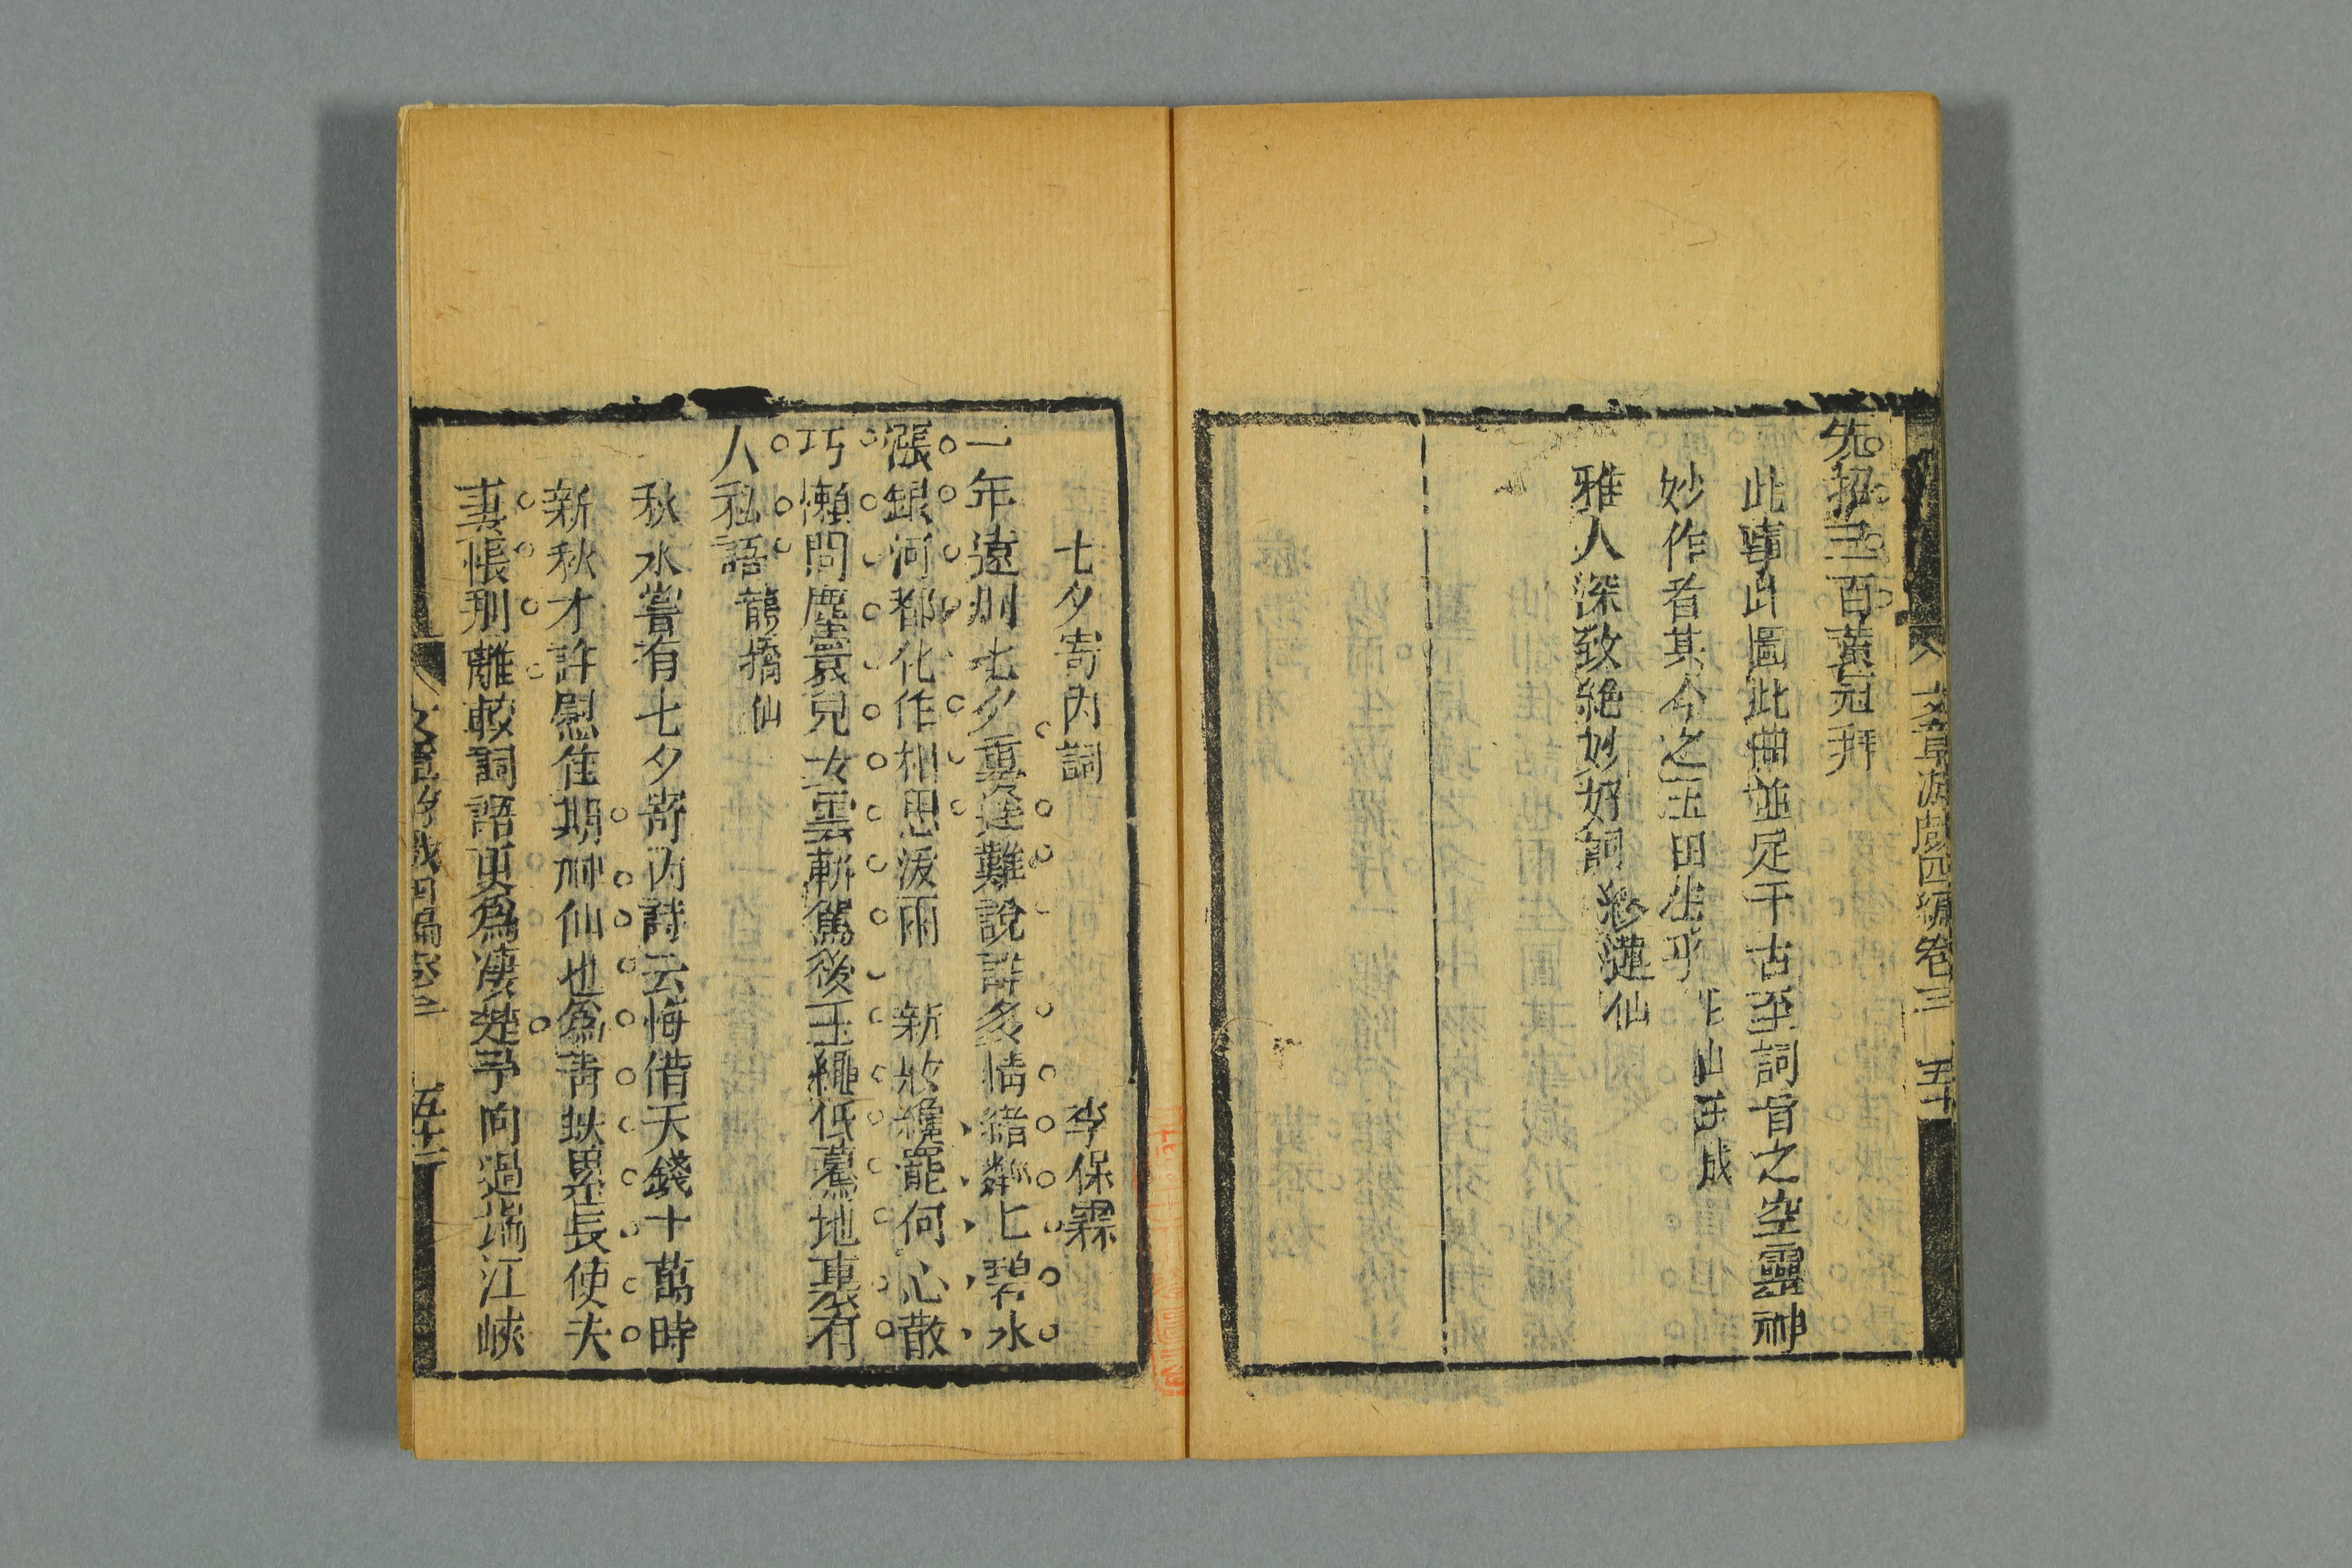 文章游戲四編卷三 五十
先招三百黃冠拜
此事此圖此曲並足千古至詞旨之空靈神
妙作者其今之玉田生乎 仙 成
雅人深致絶妙好詞 蓮仙
七夕寄内詞 李保霖
一年遠別七夕重逢難說許多情緒鄰上碧水
漲銀河都化作相思淚雨 新妝纔罷何心散
巧懶問塵寰兒女雲軿駕後玉繩低驀地裏有
人私語 鵲橋仙
秋水嘗有七夕寄内詩云悔借天錢十萬時
新秋才許慰佳期神仙也爲靑蚨累長使夫
妻悵別離較詞語更爲凄楚予向過瑞江峽
文章游戲四編卷三 五十一